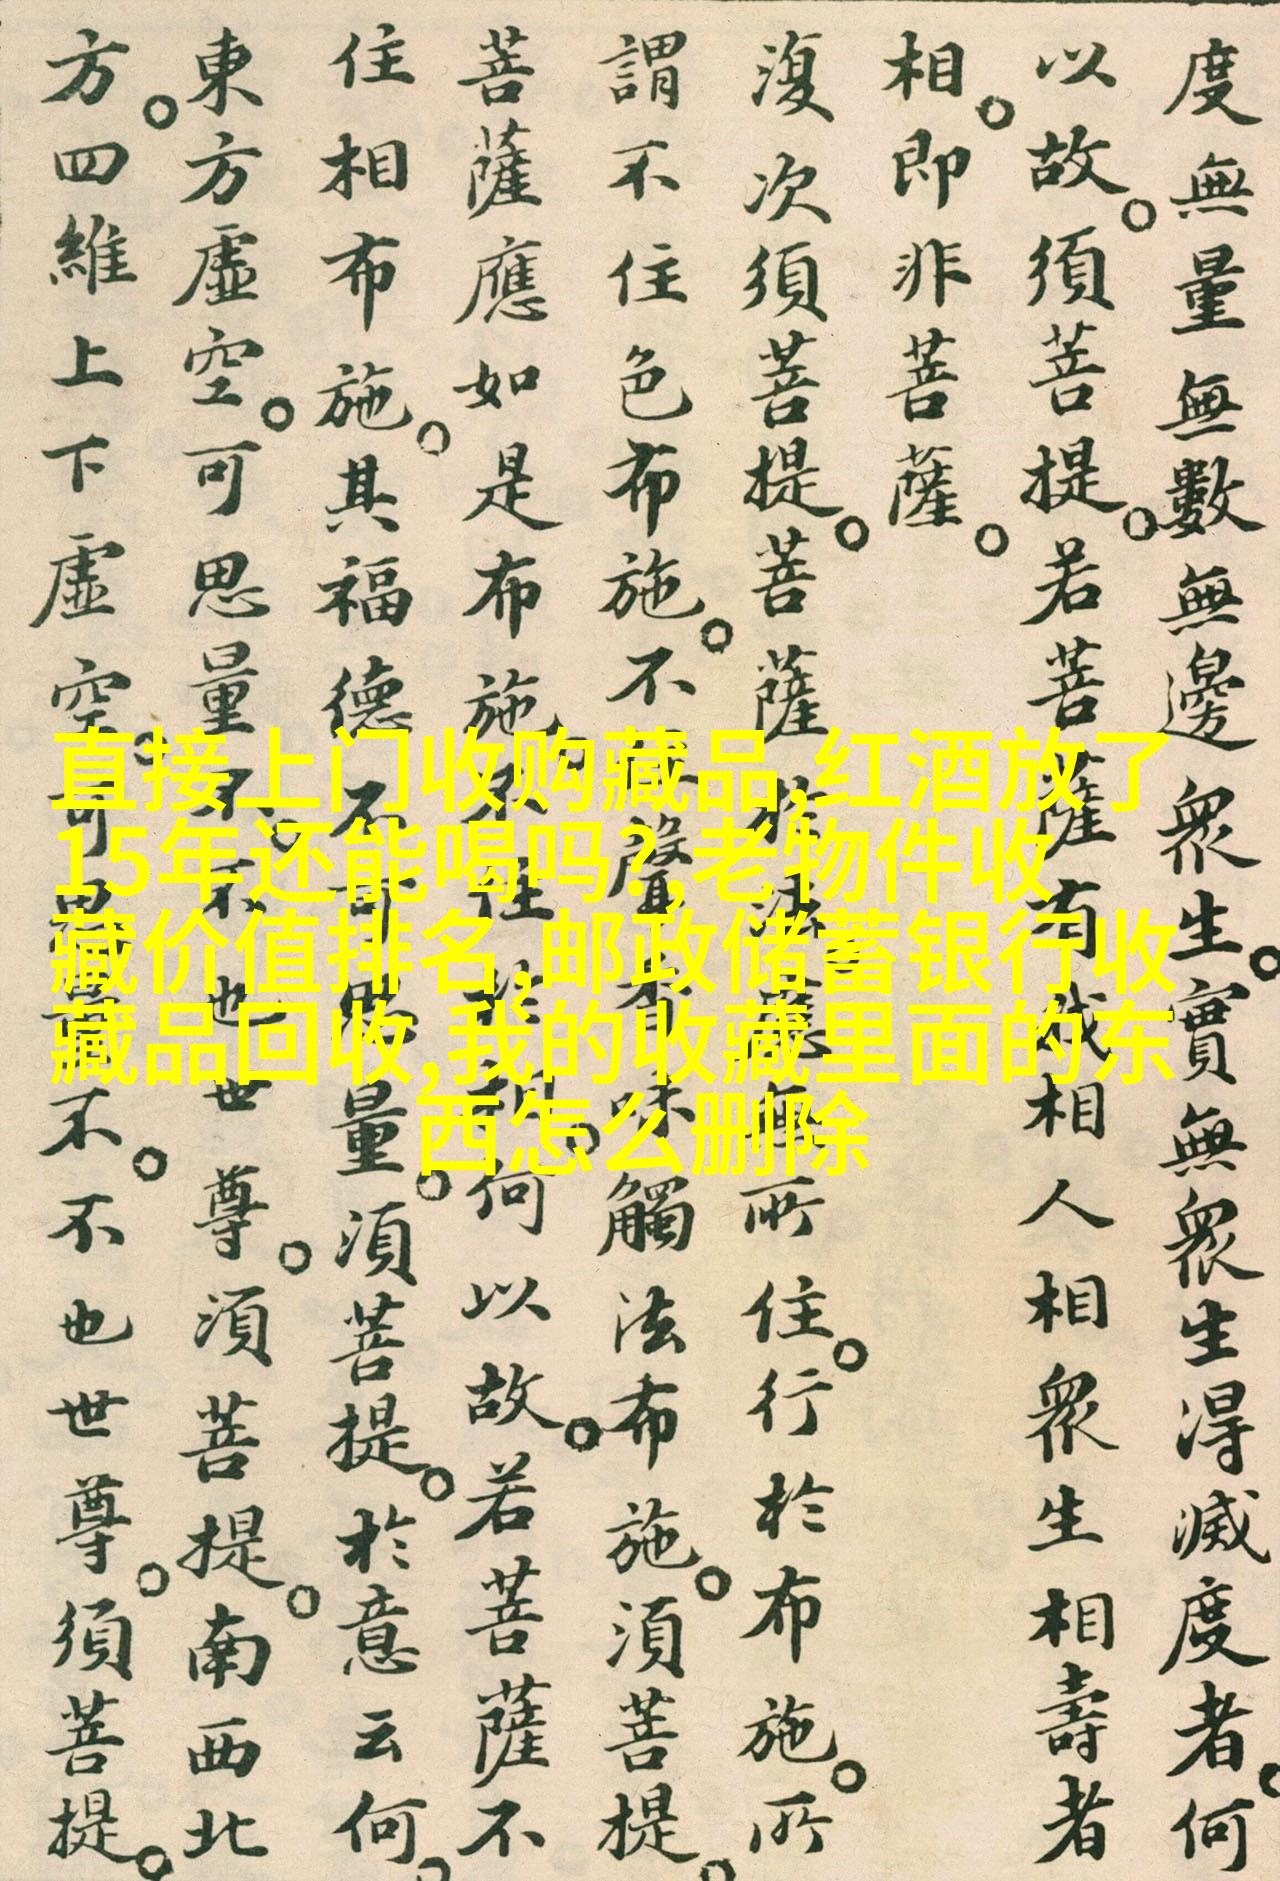 度無量無數無邊衆生。實無衆生得滅度者。何
以故。須菩提。若菩薩有我相人相衆生相壽者
相。即非菩薩。
復次須菩提。菩薩於法應無所住。行於布施。所
謂不住色布施。不住聲香味觸法布施。須菩提。
菩薩應如是布施。不住於相。何以故。若菩薩不
住相布施。其福德不可思量。須菩提。於意云何。
東方虛空。可思量不。不也世尊。須菩提。南西北
方。四維上下虛空。可思量不。不也世尊。須菩提。
直接上门收购藏品,红酒放了
15年还能喝吗?,老物件收
藏价值排名,邮政储蓄银行收
藏品回收,我的收藏里面的东
西怎么删除